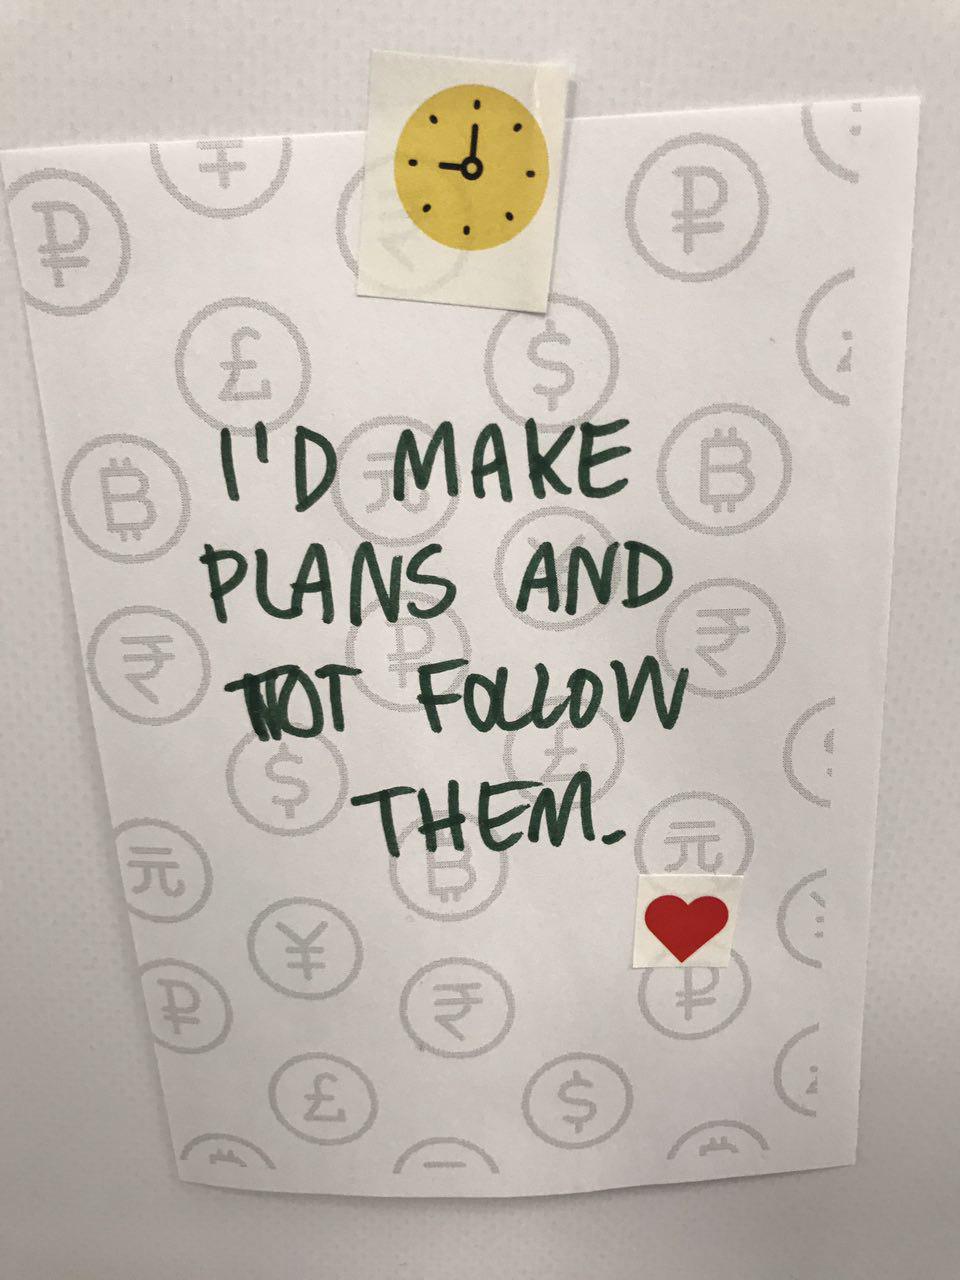 I'D MAKE
PLANS AND
NOT FOLLOW
THEM.